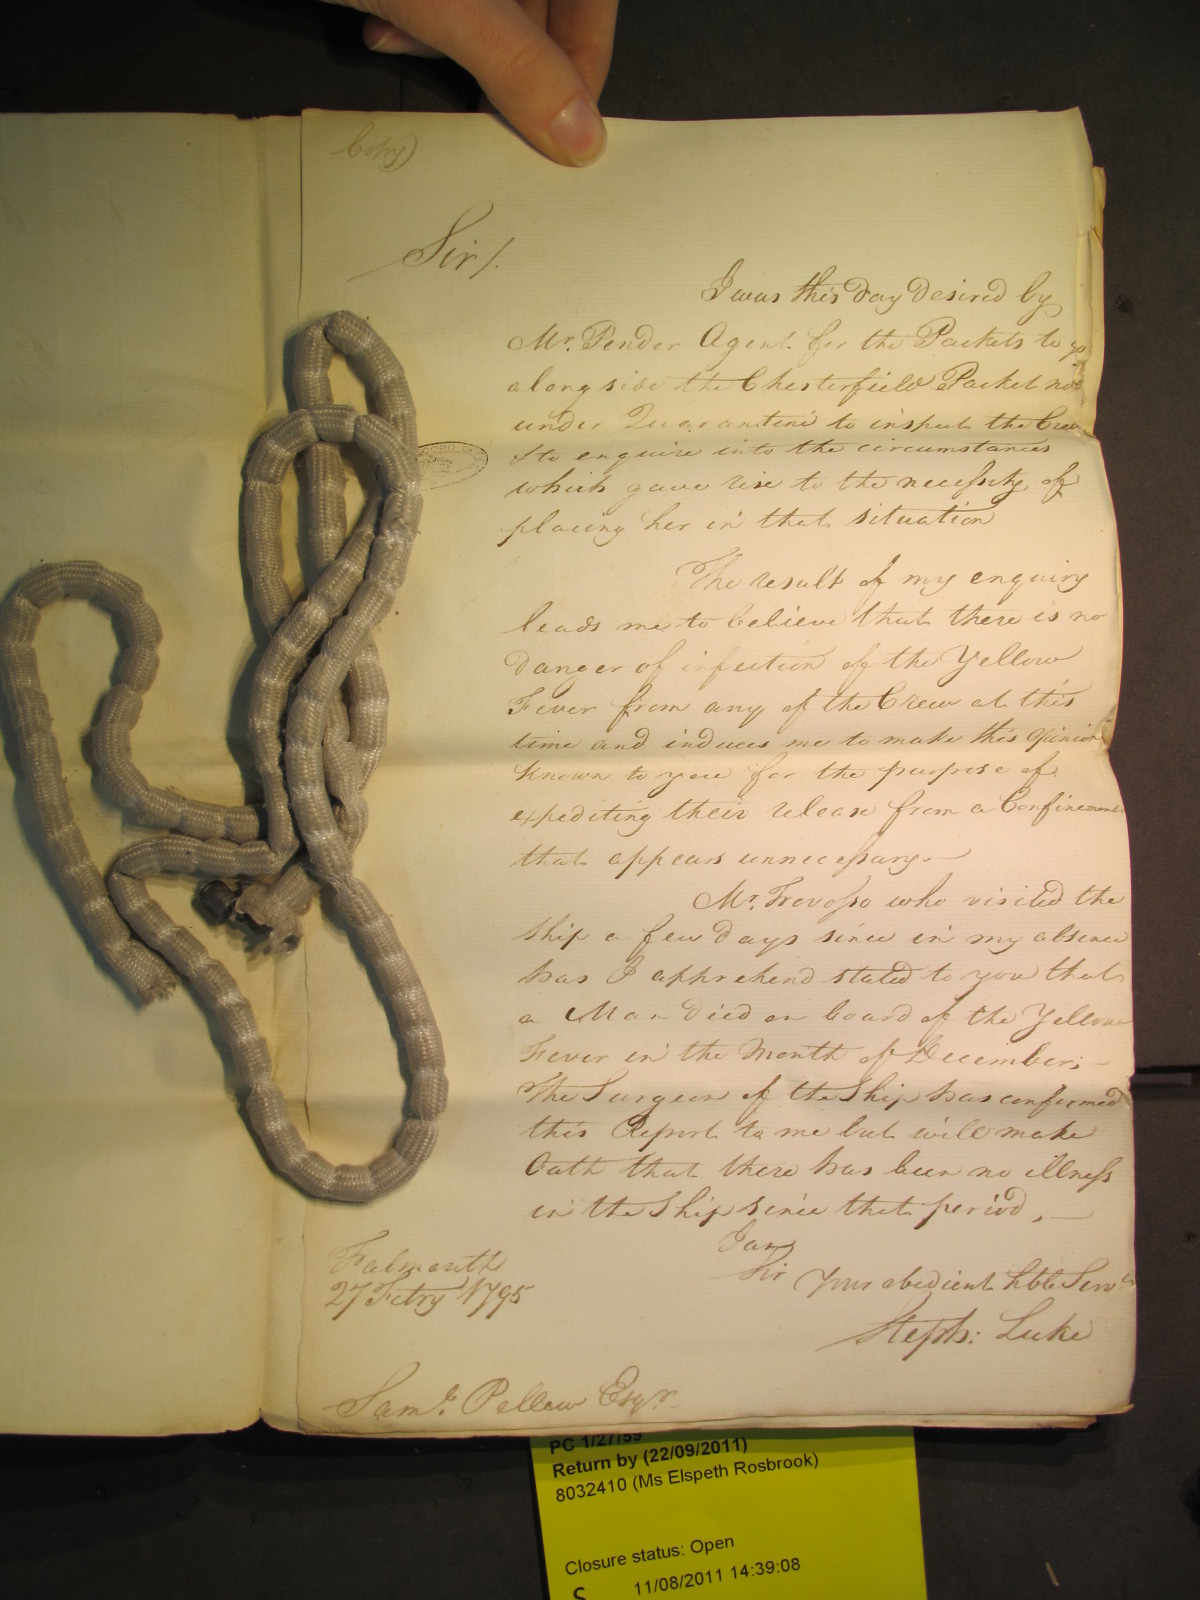 Copy)
Sir/.
I was this Day desired by
Mr. Pender Agent for the Packets to go
alongside the Chesterfield Packet now
under Quarantine to inspect the Crew
& to enquire into the circumstances
which gave rise to the necessity of
placing her in that situation
The result of my enquiry
leads me to believe that there is no
Danger of infection of the Yellow
Fever from any of the Crew at this
time and induces me to make this Opinion
known to you for the purpose of
expediting their release from a Confinement
that appears unnecessary.—
Mr. Trevosso who visited the
Ship a few Days since in my absence
has I apprehend stated to you that
a Man Died on board of the Yellow
Fever in the Month of December;—
The Surgeon of the Ship has confirmed
this Report to me but will make
Oath that there has been no illness
in the Ship since that period.—
I am
Sir
Your obedient Hble Servt.
Steph: Luke
Falmouth
27 Febry 1795
Saml. Pellew Esqr.
PC 1/27/55
Return by (22/09/2011)
8032410 (Ms Elspeth Rosbrook)
Closure status: Open
S 11/08/2011 14:39:08